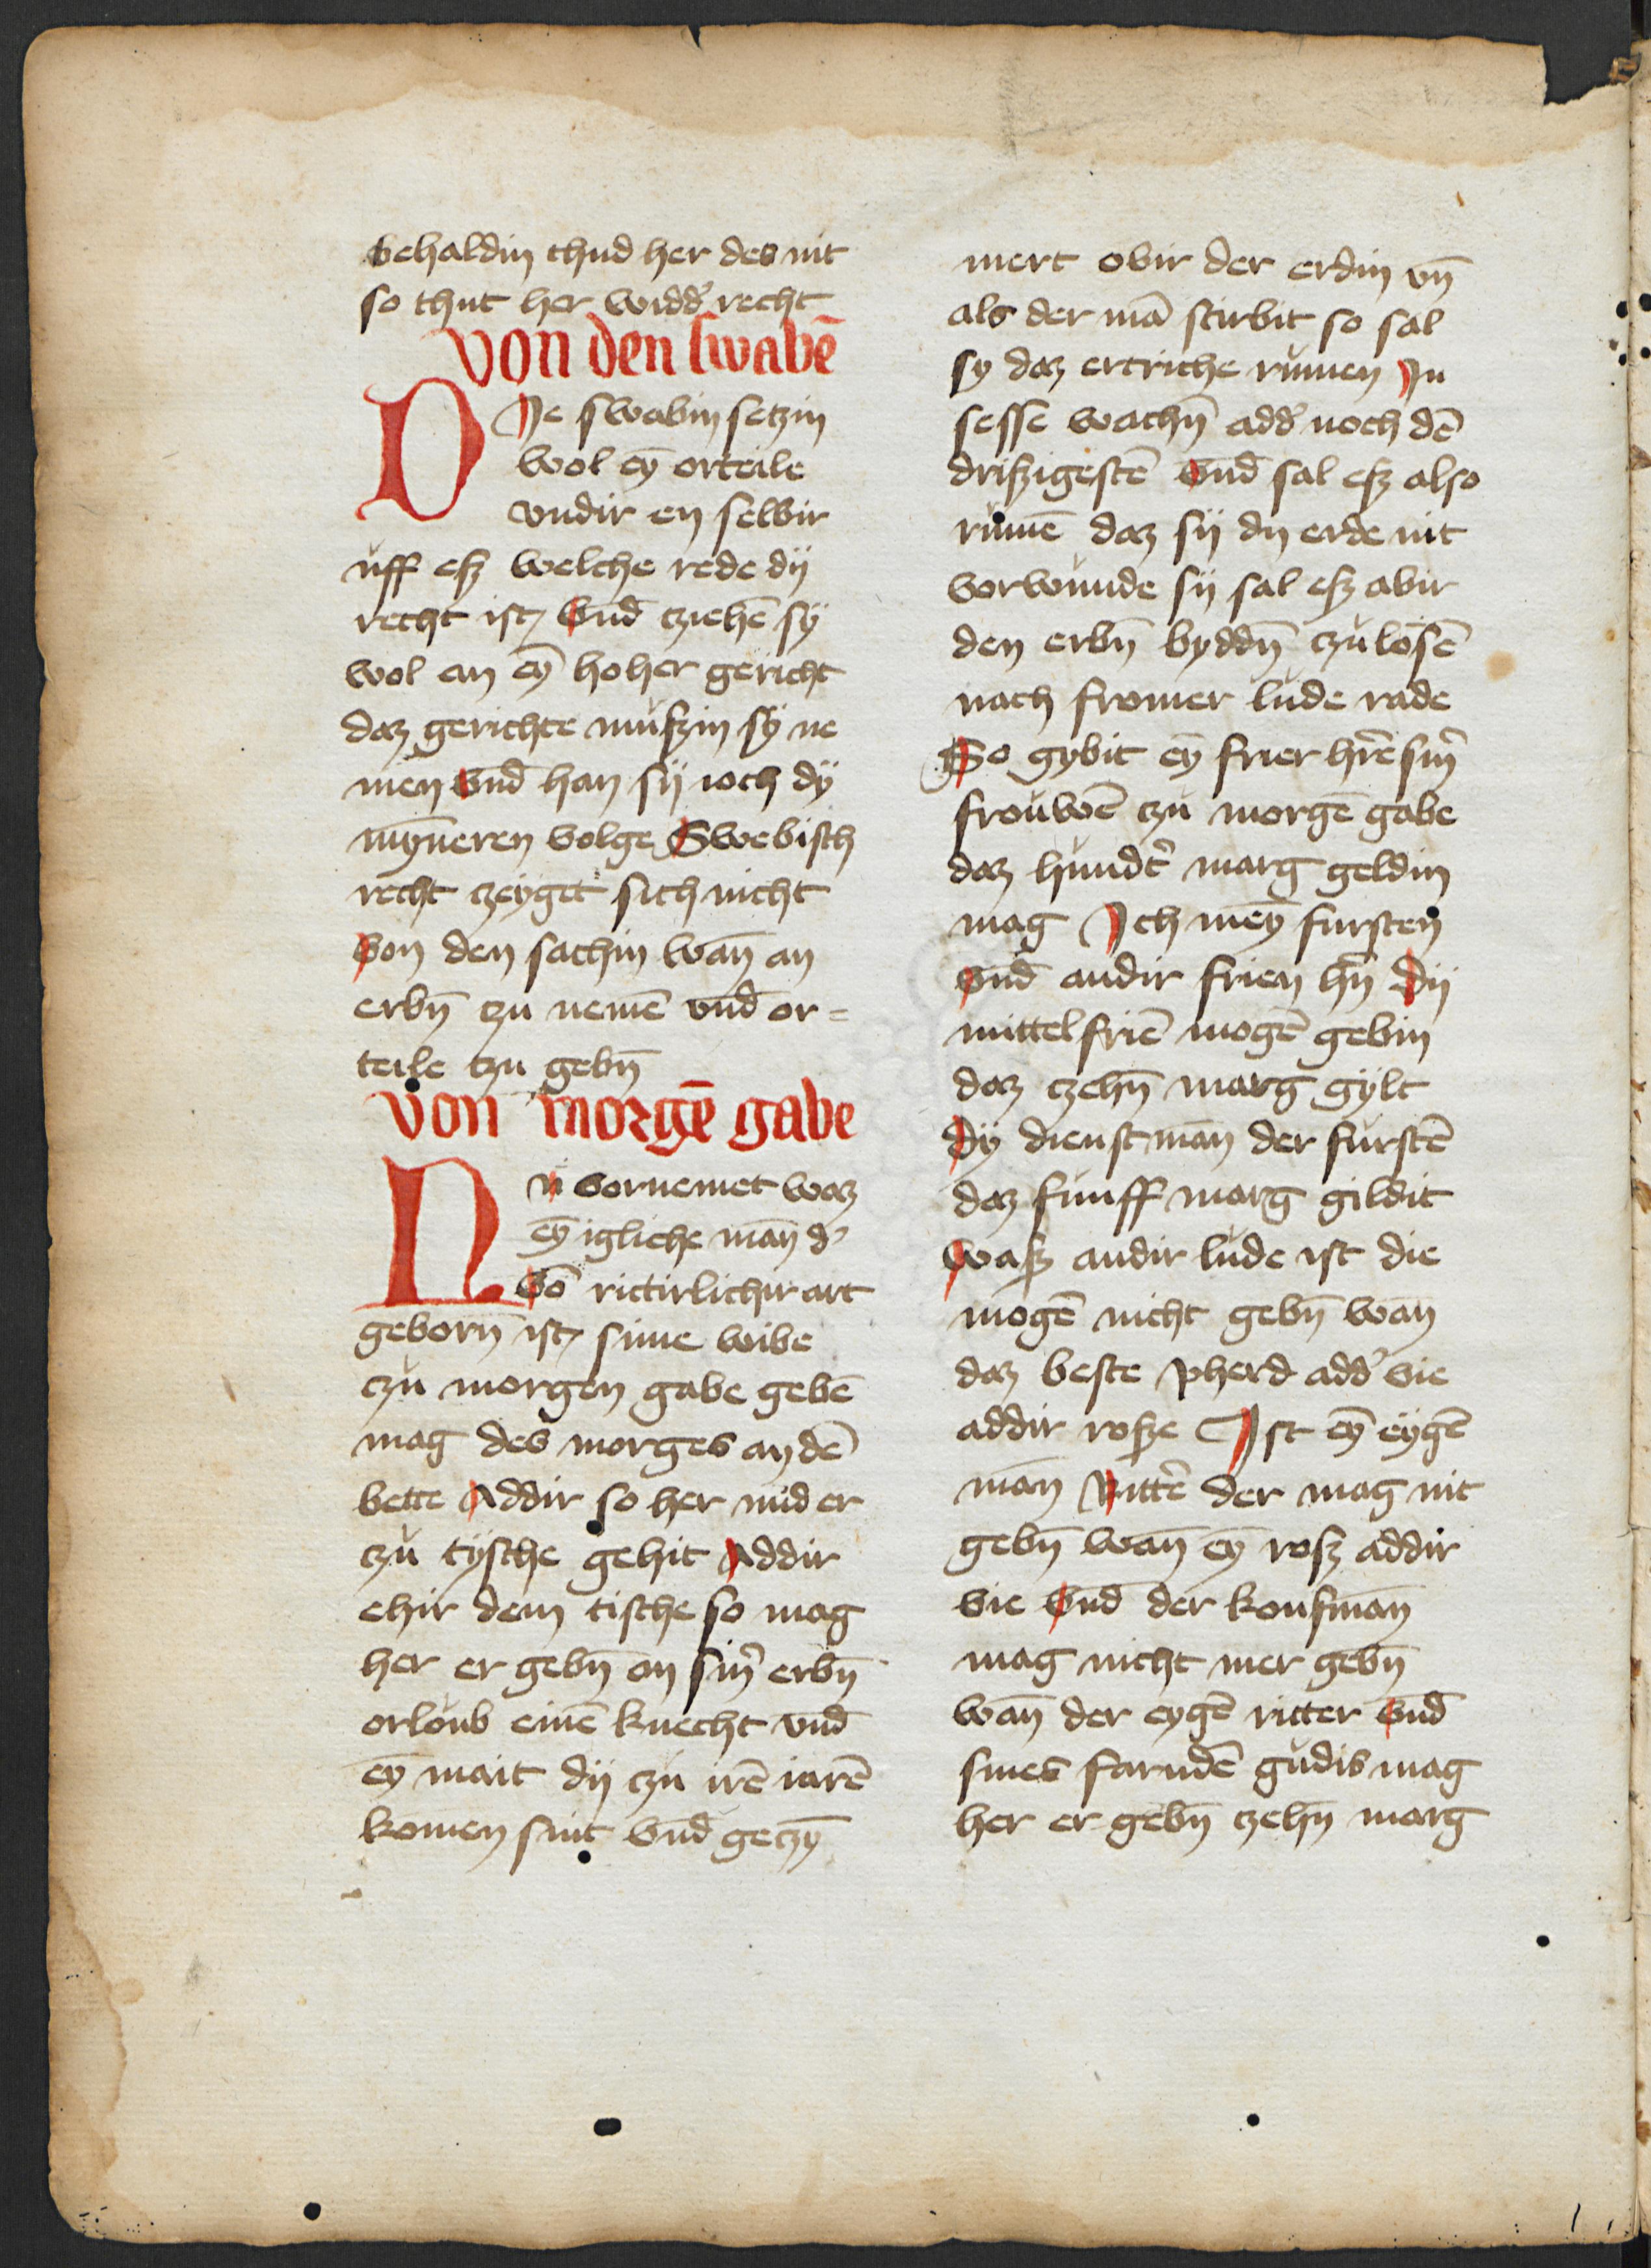 behaldin thud her des nit
so thut her widd' recht
von den swabē
DIe swabin setzin
wol eÿ orteile
vndir en selbir
uff esz welche rede dij
recht ist vnd̄ cziehē sÿ
wol an eȳ hoher gericht
daz gerichte mūszin sÿ ne
men vnd̄ han sij ioch dÿ
mȳneren volge Swebisch
recht czeÿget sich nicht
von den sachin wan̄ an
erbn̄ czu nemē vnd̄ or=
teile czu gebn̄
von morgē gabe
Nů vornemet waz
eȳ igliche man̄ d'
vō rittirlichir art
geborn̄ ist sime wibe
czů morgen gabe gebē
mag des morges an dē
bette Addir so her mid er
czů tÿsche gehit Addir
ehir dem tische so mag
her er gebn̄ on sin̄ erbn̄
orloůb einē knecht vnd̄
eȳ mait dij czů irē iarē
komen sint vnd̄ geczȳ
mert obir der erdin vn̄
als der mā stirbit so sal
sy daz ertriche růmen In
sesse wachn̄ add' noch dē
driszigestē vnd̄ sal esz also
růmē daz sij dy erde nit
vorwůnde sij sal esz abir
den erbn̄ byddn̄ czů losē
nach fromer lůde rade
So gybit eȳ frier hr̄e sin̄
froůwē czů morgē gabe
daz hůndt' marg geldin
mag Ich meȳ fursten
vnd̄ andir frien hn̄ Dij
mittel friē mogē gebin
daz czehn̄ marg gÿlt
Dÿ dienst man̄ der fůrstē
daz fůnff marg gildit
Wasz andir lůde ist die
mogē nicht gebn̄ wan̄
daz beste pherd add' vie
addir rosze Ist eȳ eÿgē
man̄ Ritt' der mag nit
gebn̄ wan̄ eȳ rosz addir
vie vnd̄ der koufman̄
mag nicht mer gebn̄
wan̄ der eygē ritter vnd̄
smes farndē gůdis mag
her er gebn̄ czehn̄ marg